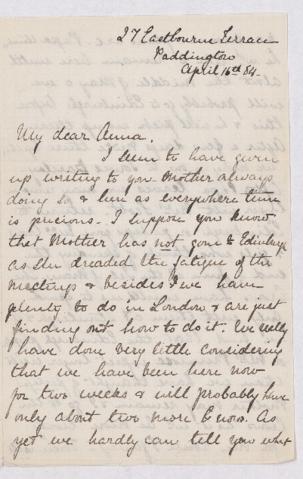 27 Eastbourne Terrace
Paddington
April 16th 84.
My dear Anna.
I seem to have given
up writing to you Mother always
doing so & here as everywhere time
is precious. I suppose you know
that Mother has not gone to Edinburgh
as she dreaded the fatigue of the
meetings & besides we have
plenty to do in London & are just
finding out how to do it. We really
have done very little considering
that we have been here now
for two weeks & will probably have
only about two more to now. As
yet we hardly can tell you what